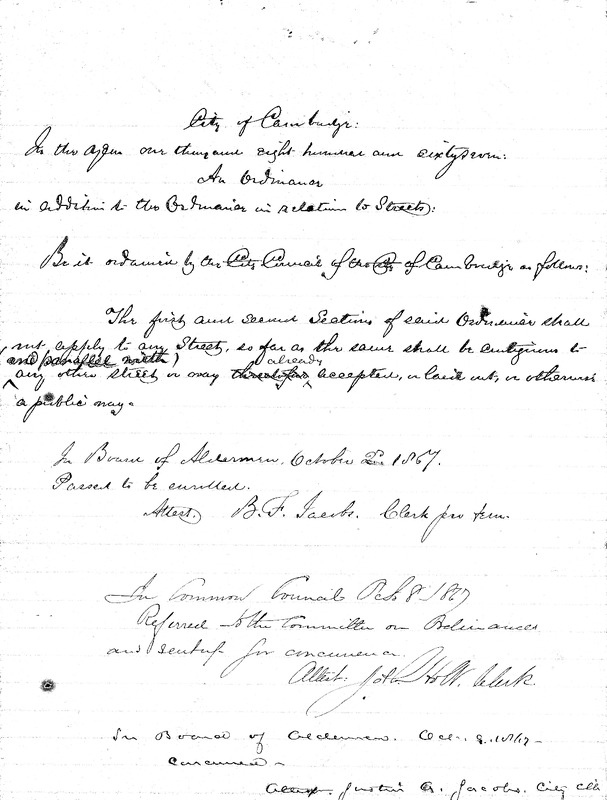 City of Cambridge:
In the year one thousand eight hundred and sixty seven:
An Ordinance
in addition to the Ordinance in relation to Streets:
Be it ordained by the City Council of the City of Cambridge as follows:
The first and second Sections of said Ordinance shall
not apply to any Street, so far as the same shall be contiguous to
(and parallel with) already
any other street or way accepted, or laid out, or otherwise
a public way.
In Board of Aldermen, October 2 1867.
Passed to be enrolled.
Attest. B. F. Jacobs. Clerk pro tem.
In Common Council Oct 8 1867
Referred to the Committee on Ordinances
and sent up for concurrence.
Attest: Clerk.
In Board of Aldermen. Oct. 1867
Concurred
Attest. Justin A. Jacobs. City Clk